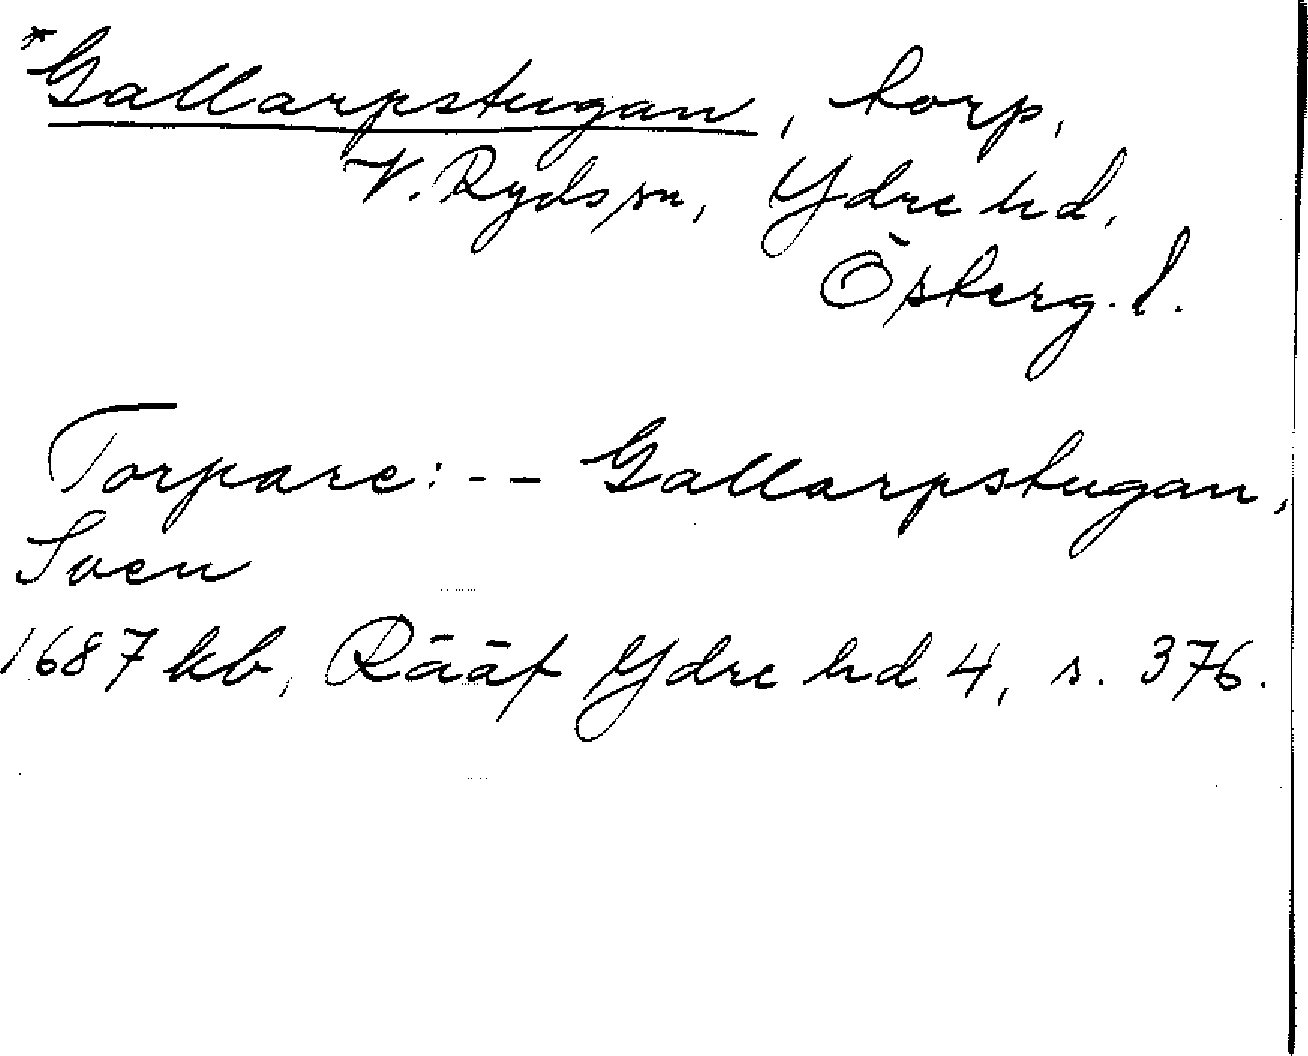 *Gallarpstugan, torp,
V. Ryds sn, Ydre hd,
Österg. l.
Torpare: -- Gallarpstugan,
Sven
1687 kb, Rääf Ydre hd 4, s. 376.